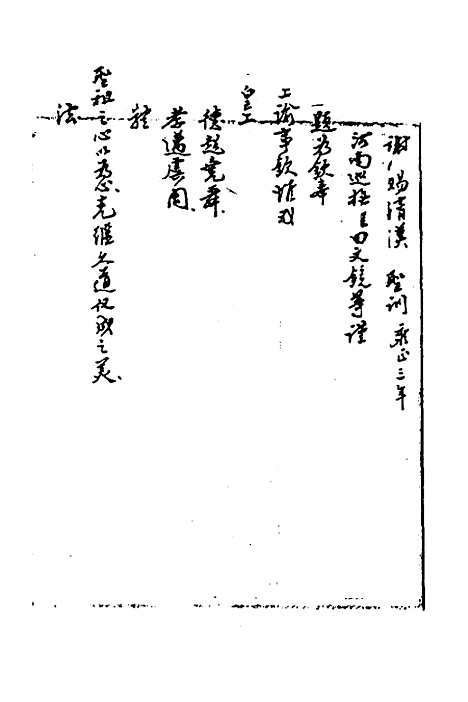 謝賜清漢聖訓 雍正三年
河南巡撫臣田文鏡等謹
題為欽奉
上諭事欽惟我
皇上
德超堯舜
孝邁虞周
體
聖祖之心以為心克繼文道仅成之美
法